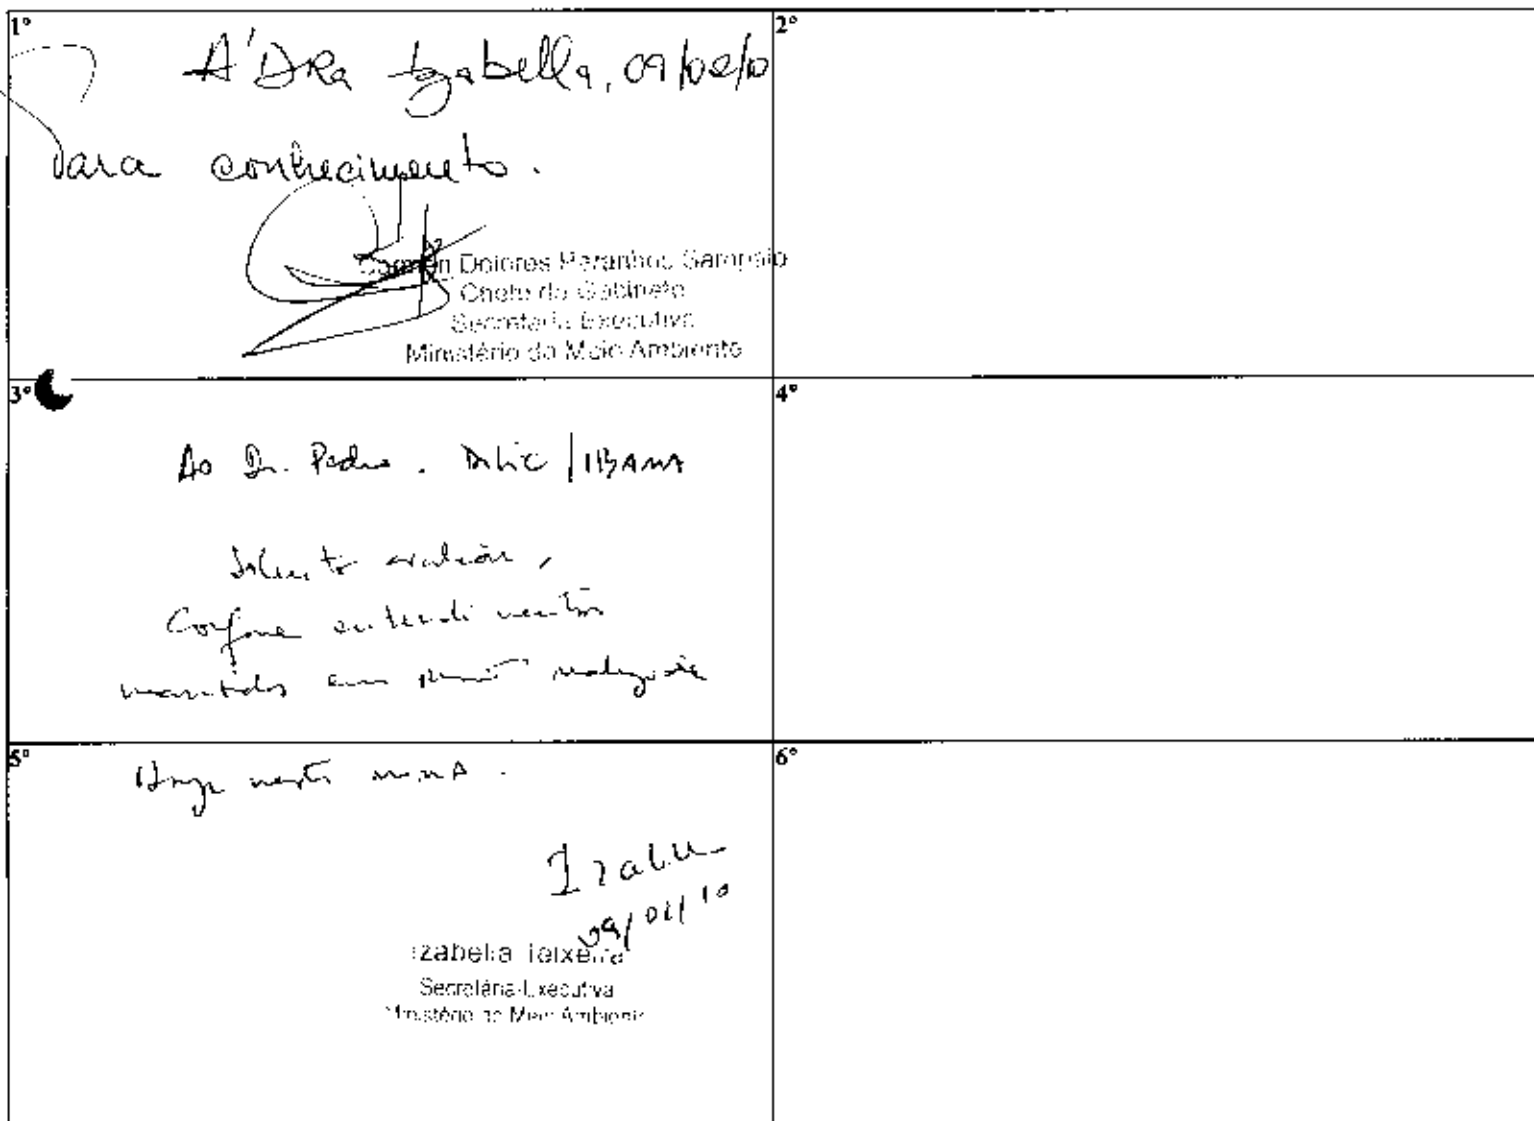 1º
2º
A' DRa Izabella, 09/02/10
Para conhecimento.
Carmen Dolores Paranhos Sampaio
Chefe de Gabinete
Secretaria Executiva
Ministério do Meio Ambiente
3º
4º
Ao Dr. Pedro. DILIC/IBAMA
Solicito
Conforme entendimentos
mantidos em
5º
6º
Izabella
09/02/10
Izabella Teixeira
Secretária-Executiva
Ministério do Meio Ambiente